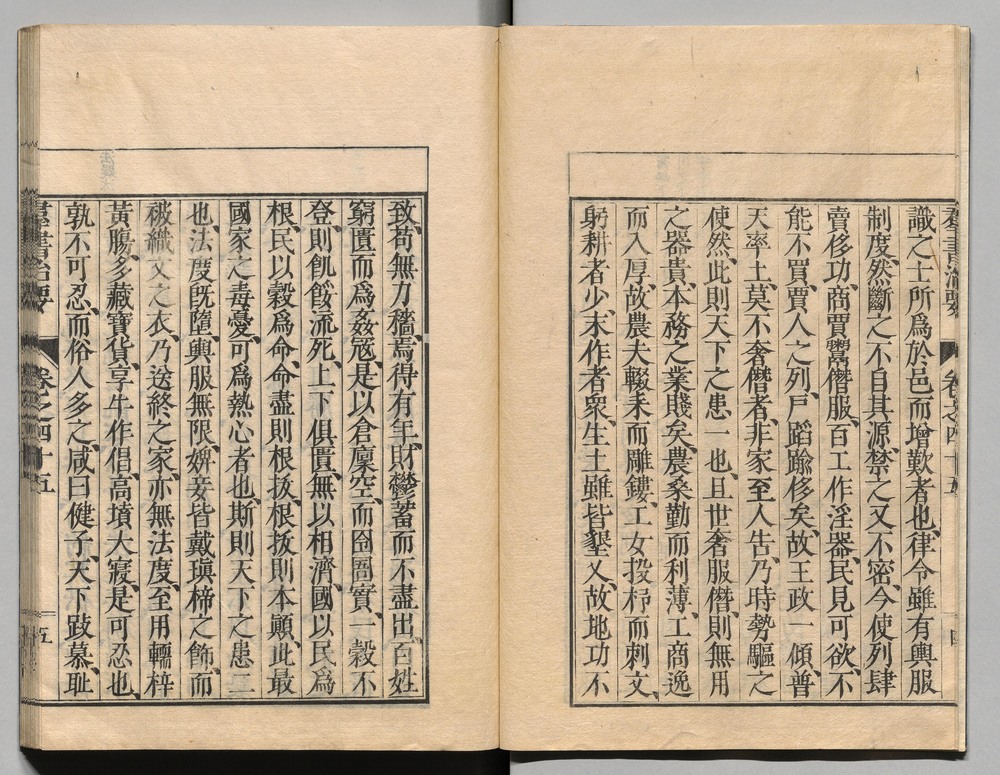 羣書治要 卷之四十五 四
識之士所爲於邑而增歎者也、律令雖有輿服
制度、然斷之不自其源、禁之又不密、今使列肆
賣侈功、商賈鬻僭服、百工作淫器、民見可欲、不
能不買、賈人之列、戶蹈踰侈矣、故王政一傾、普
天率土、莫不奢僭者、非家至人告、乃時勢驅之
使然、此則天下之患一也、且世奢服僭、則無用
之器貴、本務之業賤矣、農桑勤而利薄、工商逸
而入厚、故農夫輟耒而雕鏤、工女投杼而刺文、
躬耕者少、末作者衆、生土雖皆墾乂、故地功不
致、苟無力穡、焉得有年、財鬱蓄而不盡出、百姓
窮匱而爲姦寇、是以倉廩空、而囹圄實、一穀不
登、則飢餒流死、上下俱匱、無以相濟、國以民爲
根、民以穀爲命、命盡則根拔、根拔則本顚、此最
國家之毒憂、可爲熱心者也、斯則天下之患二
也、法度旣墮、輿服無限、婢妾皆戴瑱楴之飾、而
被織文之衣、乃送終之家、亦無法度、至用轜梓
黃腸、多藏寶貨、享牛作倡、高墳大寢、是可忍也、
孰不可忍、而俗人多之、咸曰健子、天下跂慕、恥
羣書治要 卷之四十五 五